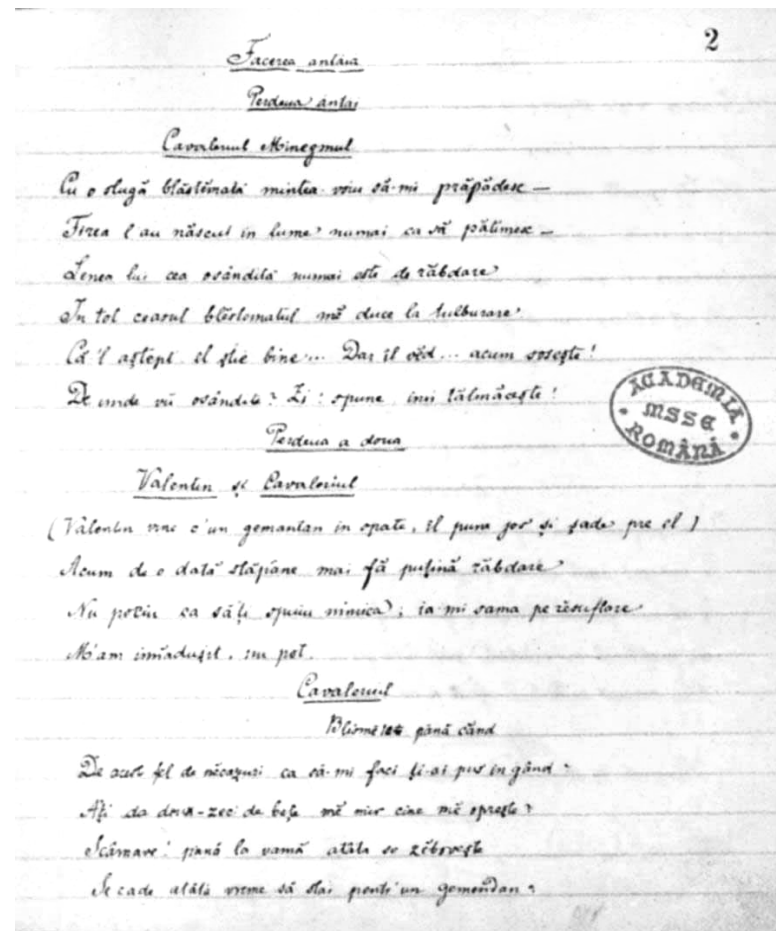 2
Facerea antăia
Perdeua antăi
Cavalerul Minegmul
Cu o slugă blăstĕmată mintea voiu să-mi prăpădesc —
Firea l au născut in lume numai ca să pătimesc —
Lenea lui cea osândită numai este de răbdare
In tot ceasul blĕstematul mĕ duce la tulburare.
Că 'l aştept el ştie bine... Dar il vĕd... acum soseşte!
De unde vii osândite? Zi! spune, imi tălmăceşte!
ACADEMIA
MSSE
ROMÂNĂ
Perdeua a doua
Valentin şi Cavalerul
(Valentin vine c'un gemantan in spate, il pune jos şi şade pre el)
Acum de o dată stăpâne mai fă puţină răbdare
Nu pociu ca să-ţi spuiu nimica; ia-mi sama pe rĕsuflare
M'am innăduşit, nu pot.
Cavalerul
până când
De acest fel de nĕcazuri ca să-mi faci ţi-ai pus in gând?
Aţi da doua-zeci de beţe mĕ mir cine mĕ opreşte?
Scârnave! pană la vamă atâta se zĕboveşte
Se cade atâta vreme să stai pentr'un gemĕndan?